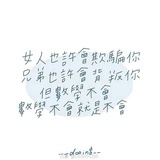 女人也許會欺騙你
兄弟也許會背叛你
但數學不會
數學不會就是不會